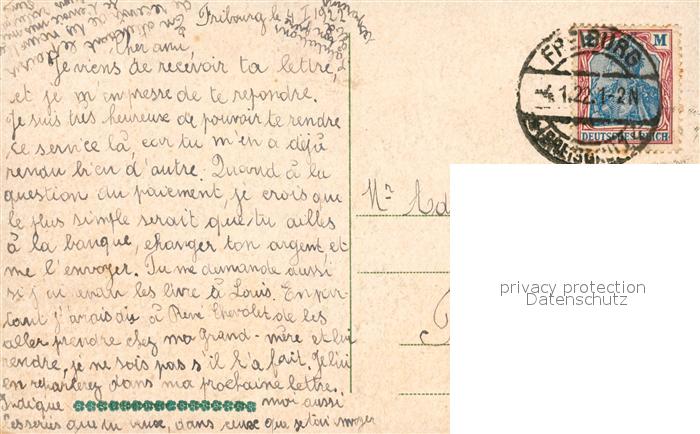 Fribourg le 4 I 1922
Cher ami,
Je viens de recevoir ta lettre,
et je m'enpresse de te repondre.
Je suis très heureuse de pouvoir te rendre
ce service là, car tu m'en a déjà
rendu bien d'autre. Quand à la
question du paiement, je crois que
le plus simple serait que tu ailles
à la banque, ehanger ton argent et
me l'envoyer. Tu me demande aussi
si j'ai les livre à Louis. En par-
tant j'avais dit à René Chevolet de les
aller prendre chez ma Grand-mère et lui
rendre, je ne sais pas s'il l'a fait. Je lui
en reparlerez dans ma prochaine lettre.
Indique moi aussi
les series que tu veux, dans ceux que je tai envoyer
Mr
M
FREIBURG
4.1.22.1-2N
DEUTSCHES REICH
privacy protection
Datenschutz